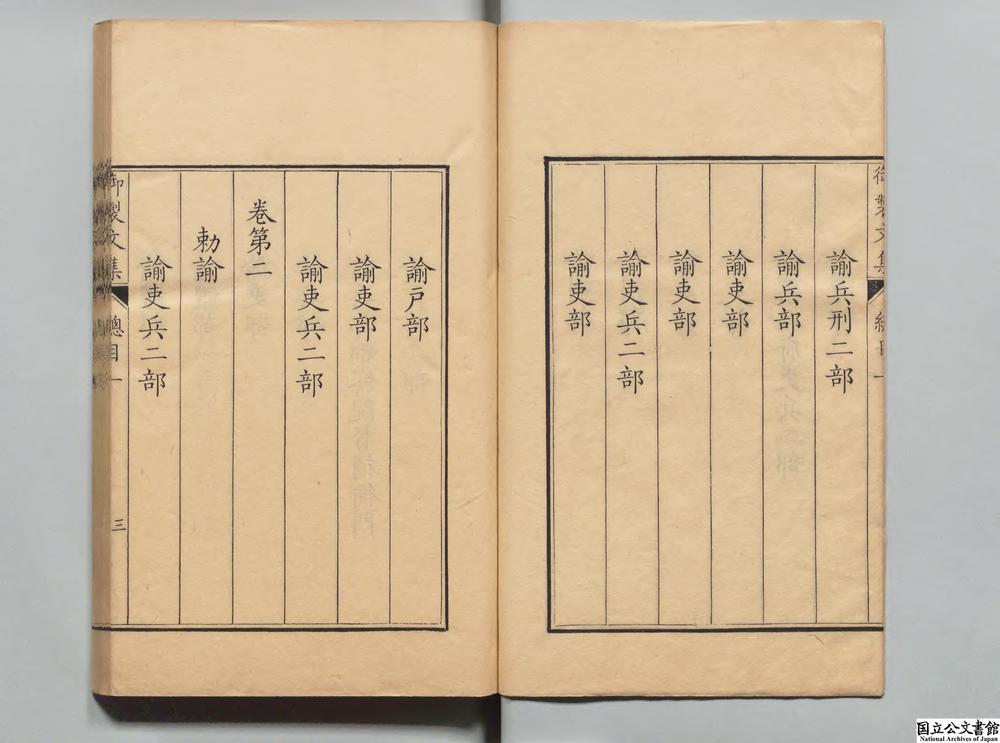 御製文集 總目一
諭兵刑二部
諭兵部
諭吏部
諭吏部
諭吏兵二部
諭吏部
諭戸部
諭吏部
諭吏兵二部
卷第二
勅諭
諭吏兵二部
御製文集 總目一 三
国立公文書館
National Archives of Japan